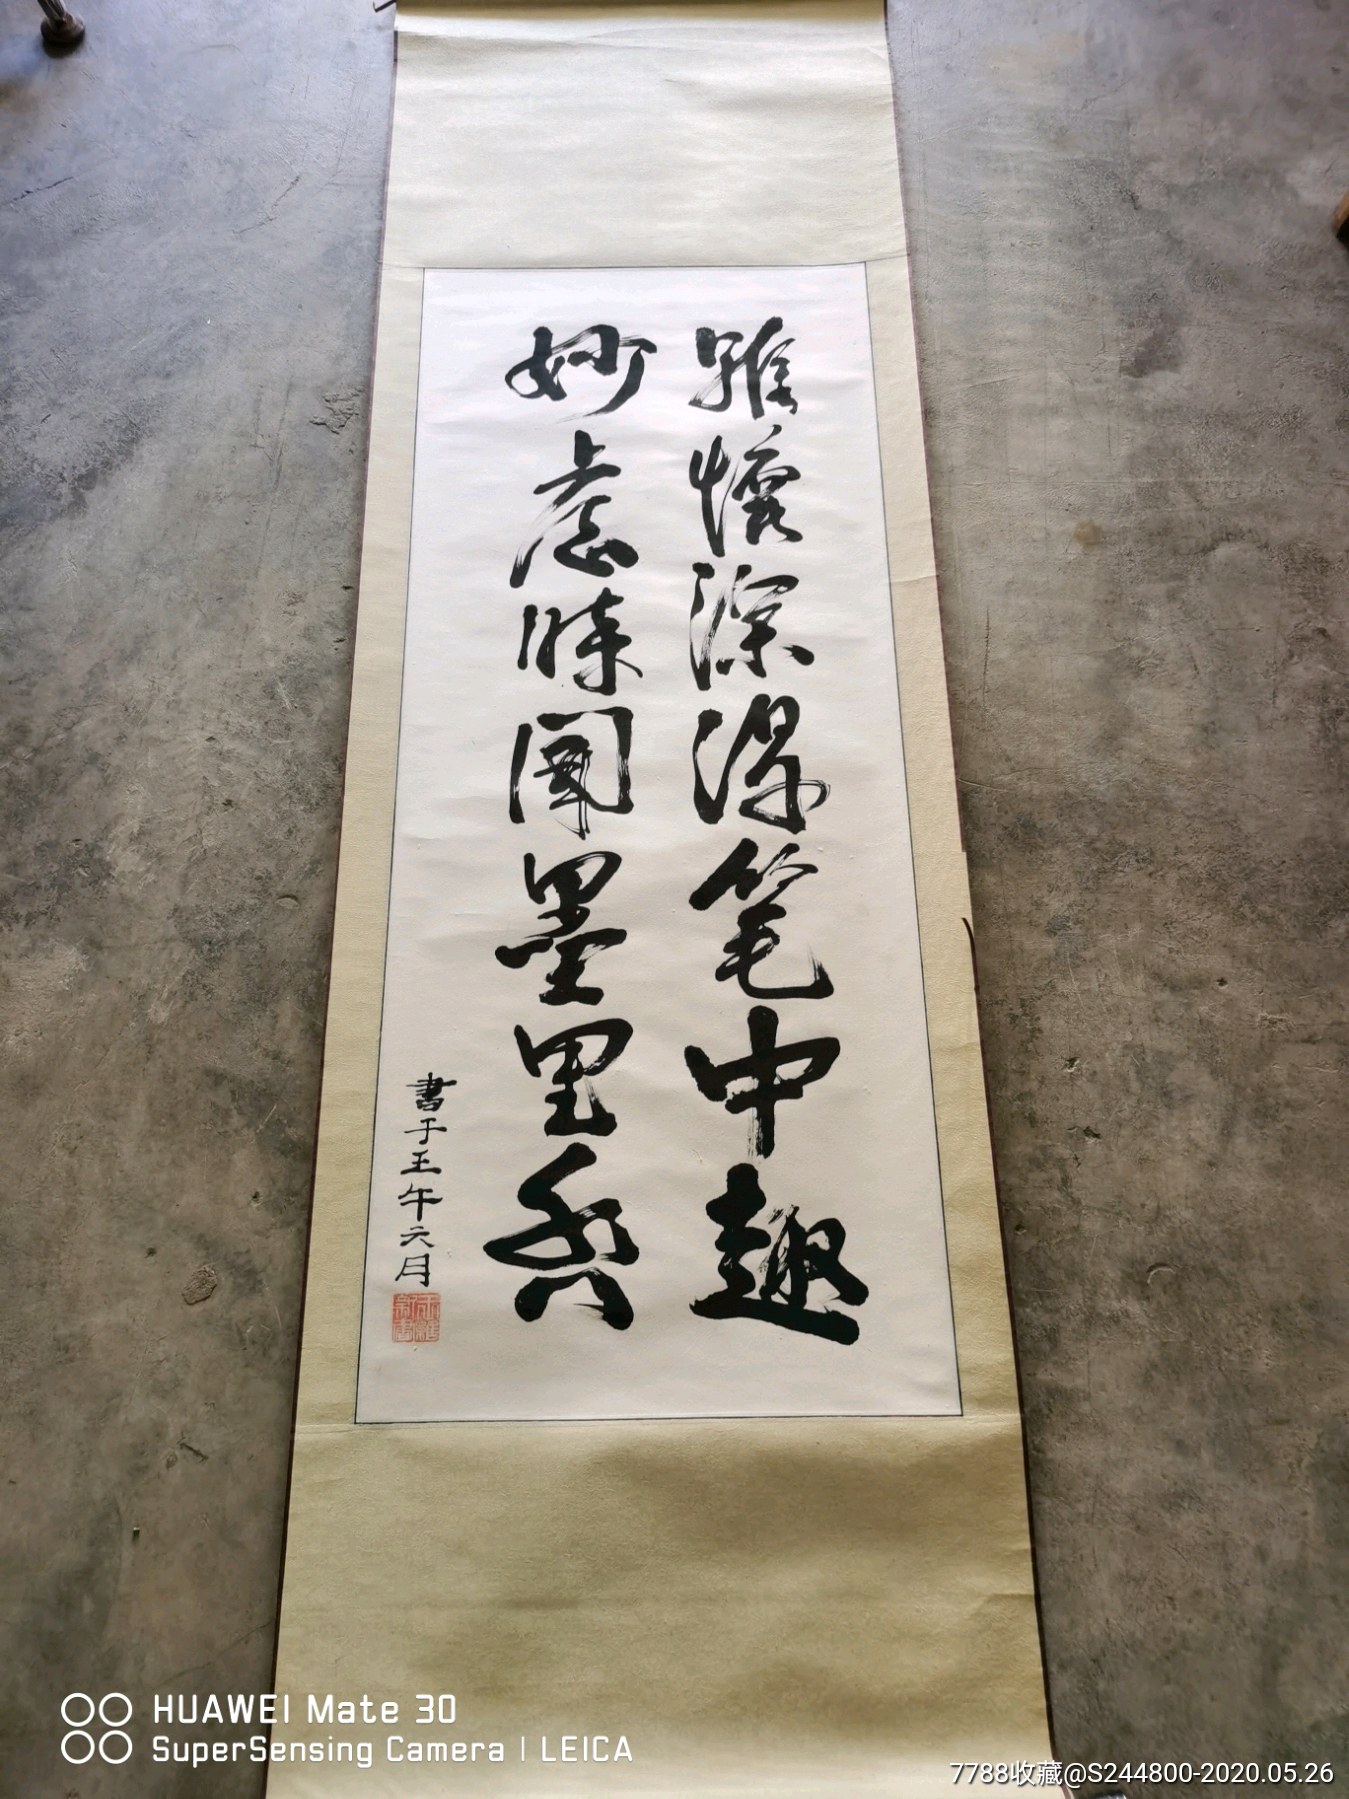 雅懷深得笔中趣
妙意時闻墨里香
書于壬午六月
HUAWEI Mate 30
SuperSensing Camera | LEICA
7788收藏@S244800-2020.05.26